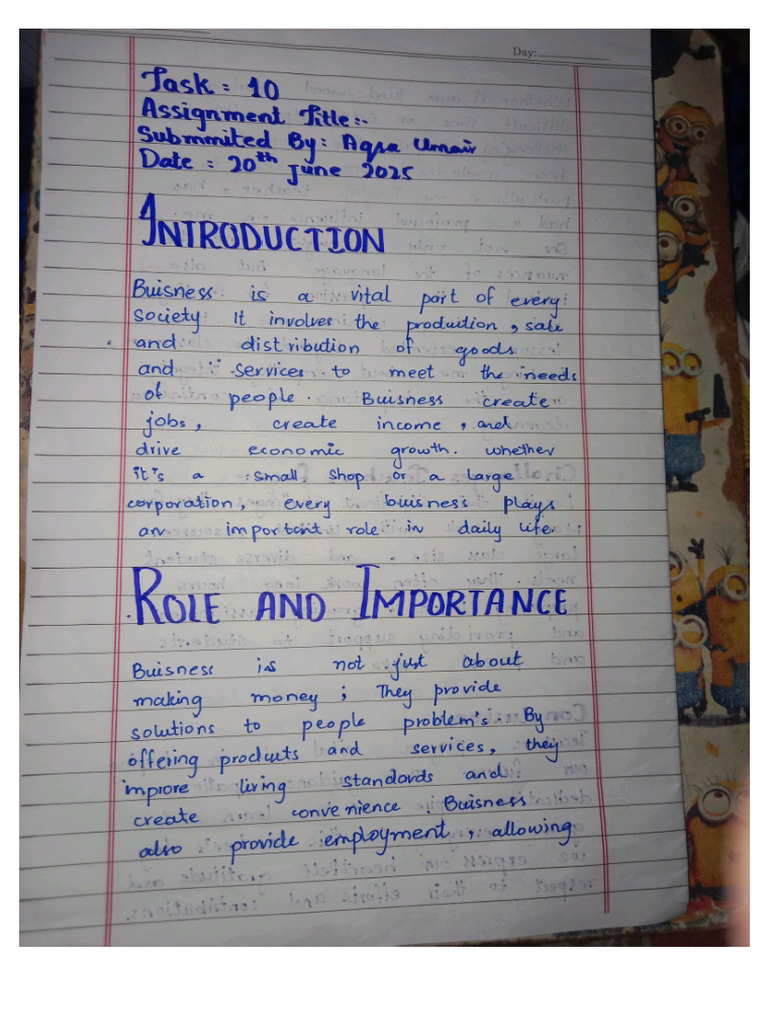 Day:
Task: 10
Assignment Title:-
Submmited By: Aqsa Umair
Date: 20th June 2025
INTRODUCTION
Buisness is a vital part of every
society It involves the prodution, sale
and distribution of goods
and services to meet the needs
of people. Buisness create
jobs, create income, and
drive economic growth. whether
it's a small shop or a large
corporation, every buisness plays
an important role in daily life.
ROLE AND IMPORTANCE
Buisness is not just about
making money; They provide
solutions to people problem's. By
offering products and services, they
improre living standards and
create convenience. Buisness
also provide employment, allowing